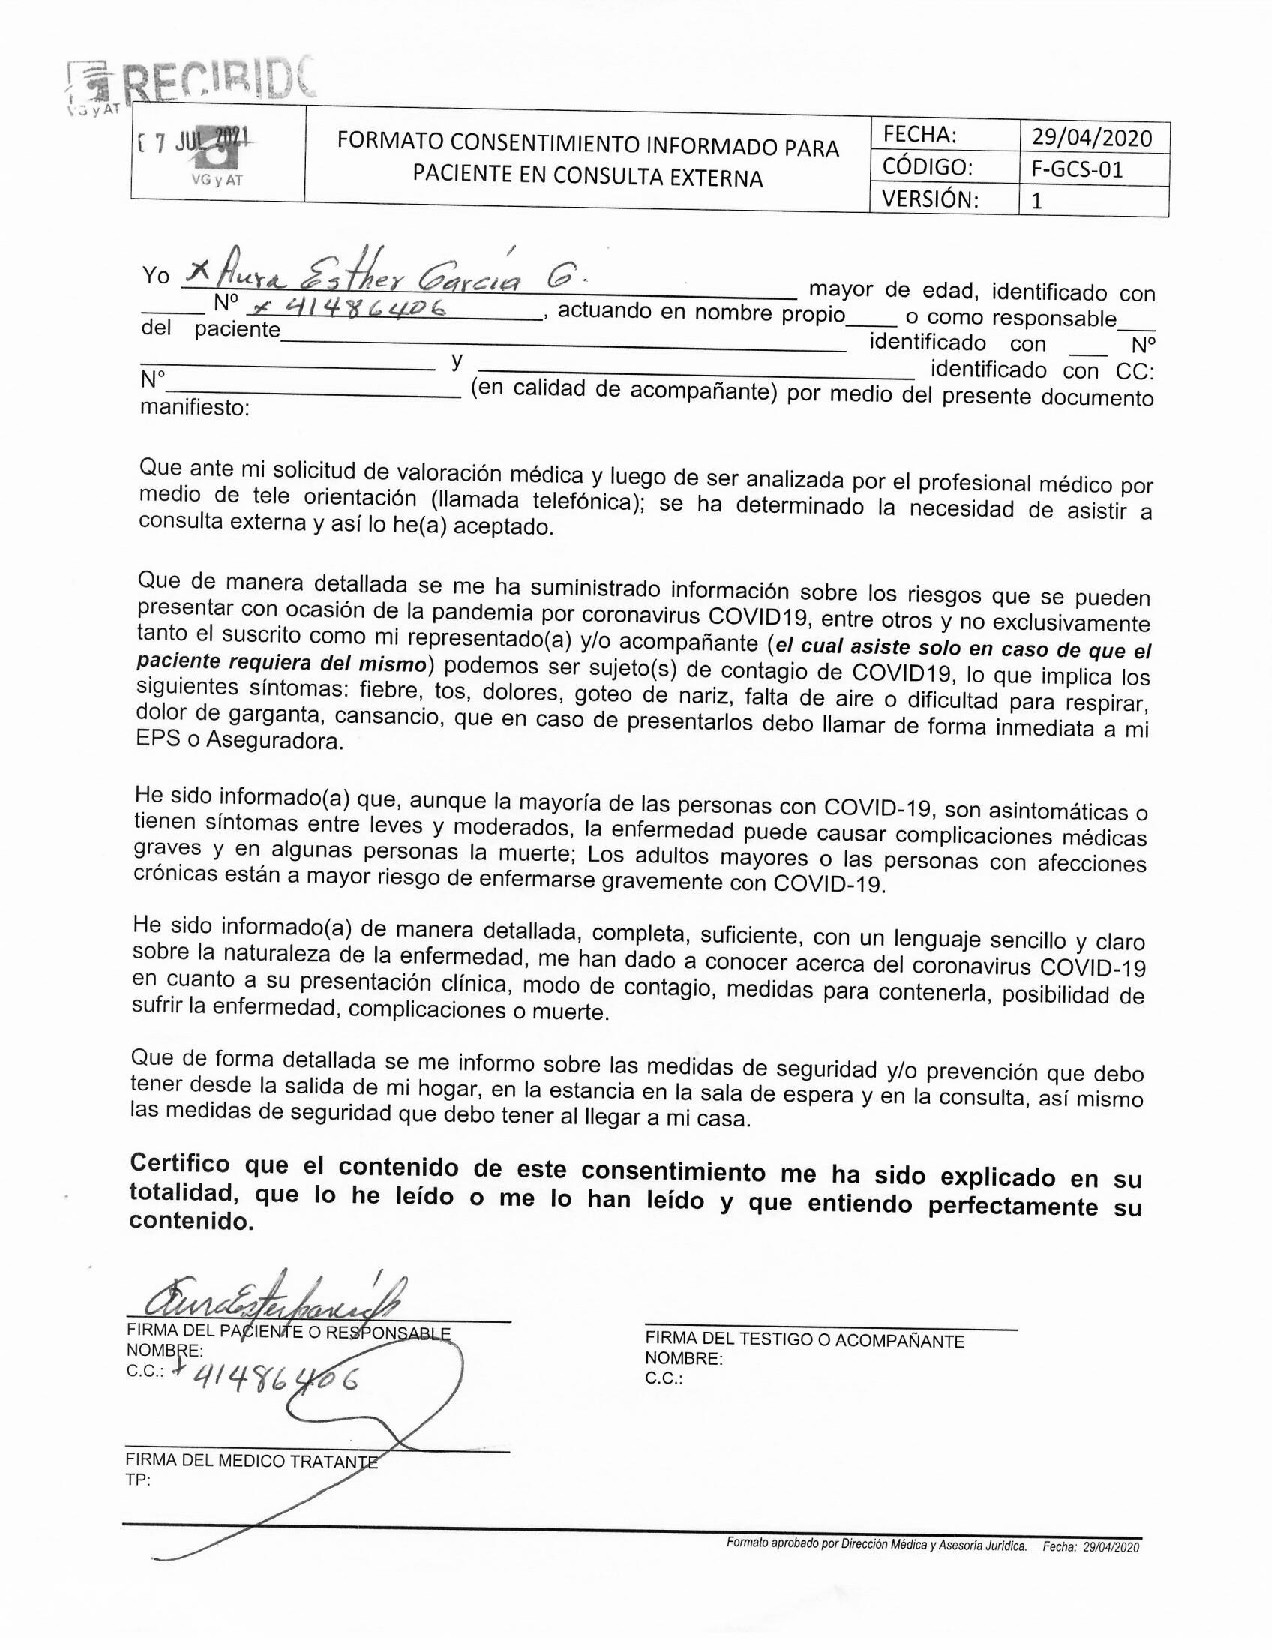 RECIBIDO
VG y AT
7 JUL 2021
VG y AT
FORMATO CONSENTIMIENTO INFORMADO PARA
PACIENTE EN CONSULTA EXTERNA
FECHA: 29/04/2020
CÓDIGO: F-GCS-01
VERSIÓN: 1
Yo x Aura Esther García G. mayor de edad, identificado con
____ Nº x 41486406, actuando en nombre propio____ o como responsable___
del paciente____ identificado con ___ Nº
____ y ____ identificado con CC:
Nº____ (en calidad de acompañante) por medio del presente documento
manifiesto:
Que ante mi solicitud de valoración médica y luego de ser analizada por el profesional médico por
medio de tele orientación (llamada telefónica); se ha determinado la necesidad de asistir a
consulta externa y así lo he(a) aceptado.
Que de manera detallada se me ha suministrado información sobre los riesgos que se pueden
presentar con ocasión de la pandemia por coronavirus COVID19, entre otros y no exclusivamente
tanto el suscrito como mi representado(a) y/o acompañante (el cual asiste solo en caso de que el
paciente requiera del mismo) podemos ser sujeto(s) de contagio de COVID19, lo que implica los
siguientes síntomas: fiebre, tos, dolores, goteo de nariz, falta de aire o dificultad para respirar,
dolor de garganta, cansancio, que en caso de presentarlos debo llamar de forma inmediata a mi
EPS o Aseguradora.
He sido informado(a) que, aunque la mayoría de las personas con COVID-19, son asintomáticas o
tienen síntomas entre leves y moderados, la enfermedad puede causar complicaciones médicas
graves y en algunas personas la muerte; Los adultos mayores o las personas con afecciones
crónicas están a mayor riesgo de enfermarse gravemente con COVID-19.
He sido informado(a) de manera detallada, completa, suficiente, con un lenguaje sencillo y claro
sobre la naturaleza de la enfermedad, me han dado a conocer acerca del coronavirus COVID-19
en cuanto a su presentación clínica, modo de contagio, medidas para contenerla, posibilidad de
sufrir la enfermedad, complicaciones o muerte.
Que de forma detallada se me informo sobre las medidas de seguridad y/o prevención que debo
tener desde la salida de mi hogar, en la estancia en la sala de espera y en la consulta, así mismo
las medidas de seguridad que debo tener al llegar a mi casa.
Certifico que el contenido de este consentimiento me ha sido explicado en su
totalidad, que lo he leído o me lo han leído y que entiendo perfectamente su
contenido.
FIRMA DEL PACIENTE O RESPONSABLE
NOMBRE:
C.C.: x 41486406
FIRMA DEL TESTIGO O ACOMPAÑANTE
NOMBRE:
C.C.:
FIRMA DEL MEDICO TRATANTE
TP:
Formato aprobado por Dirección Médica y Asesoría Jurídica. Fecha: 29/04/2020